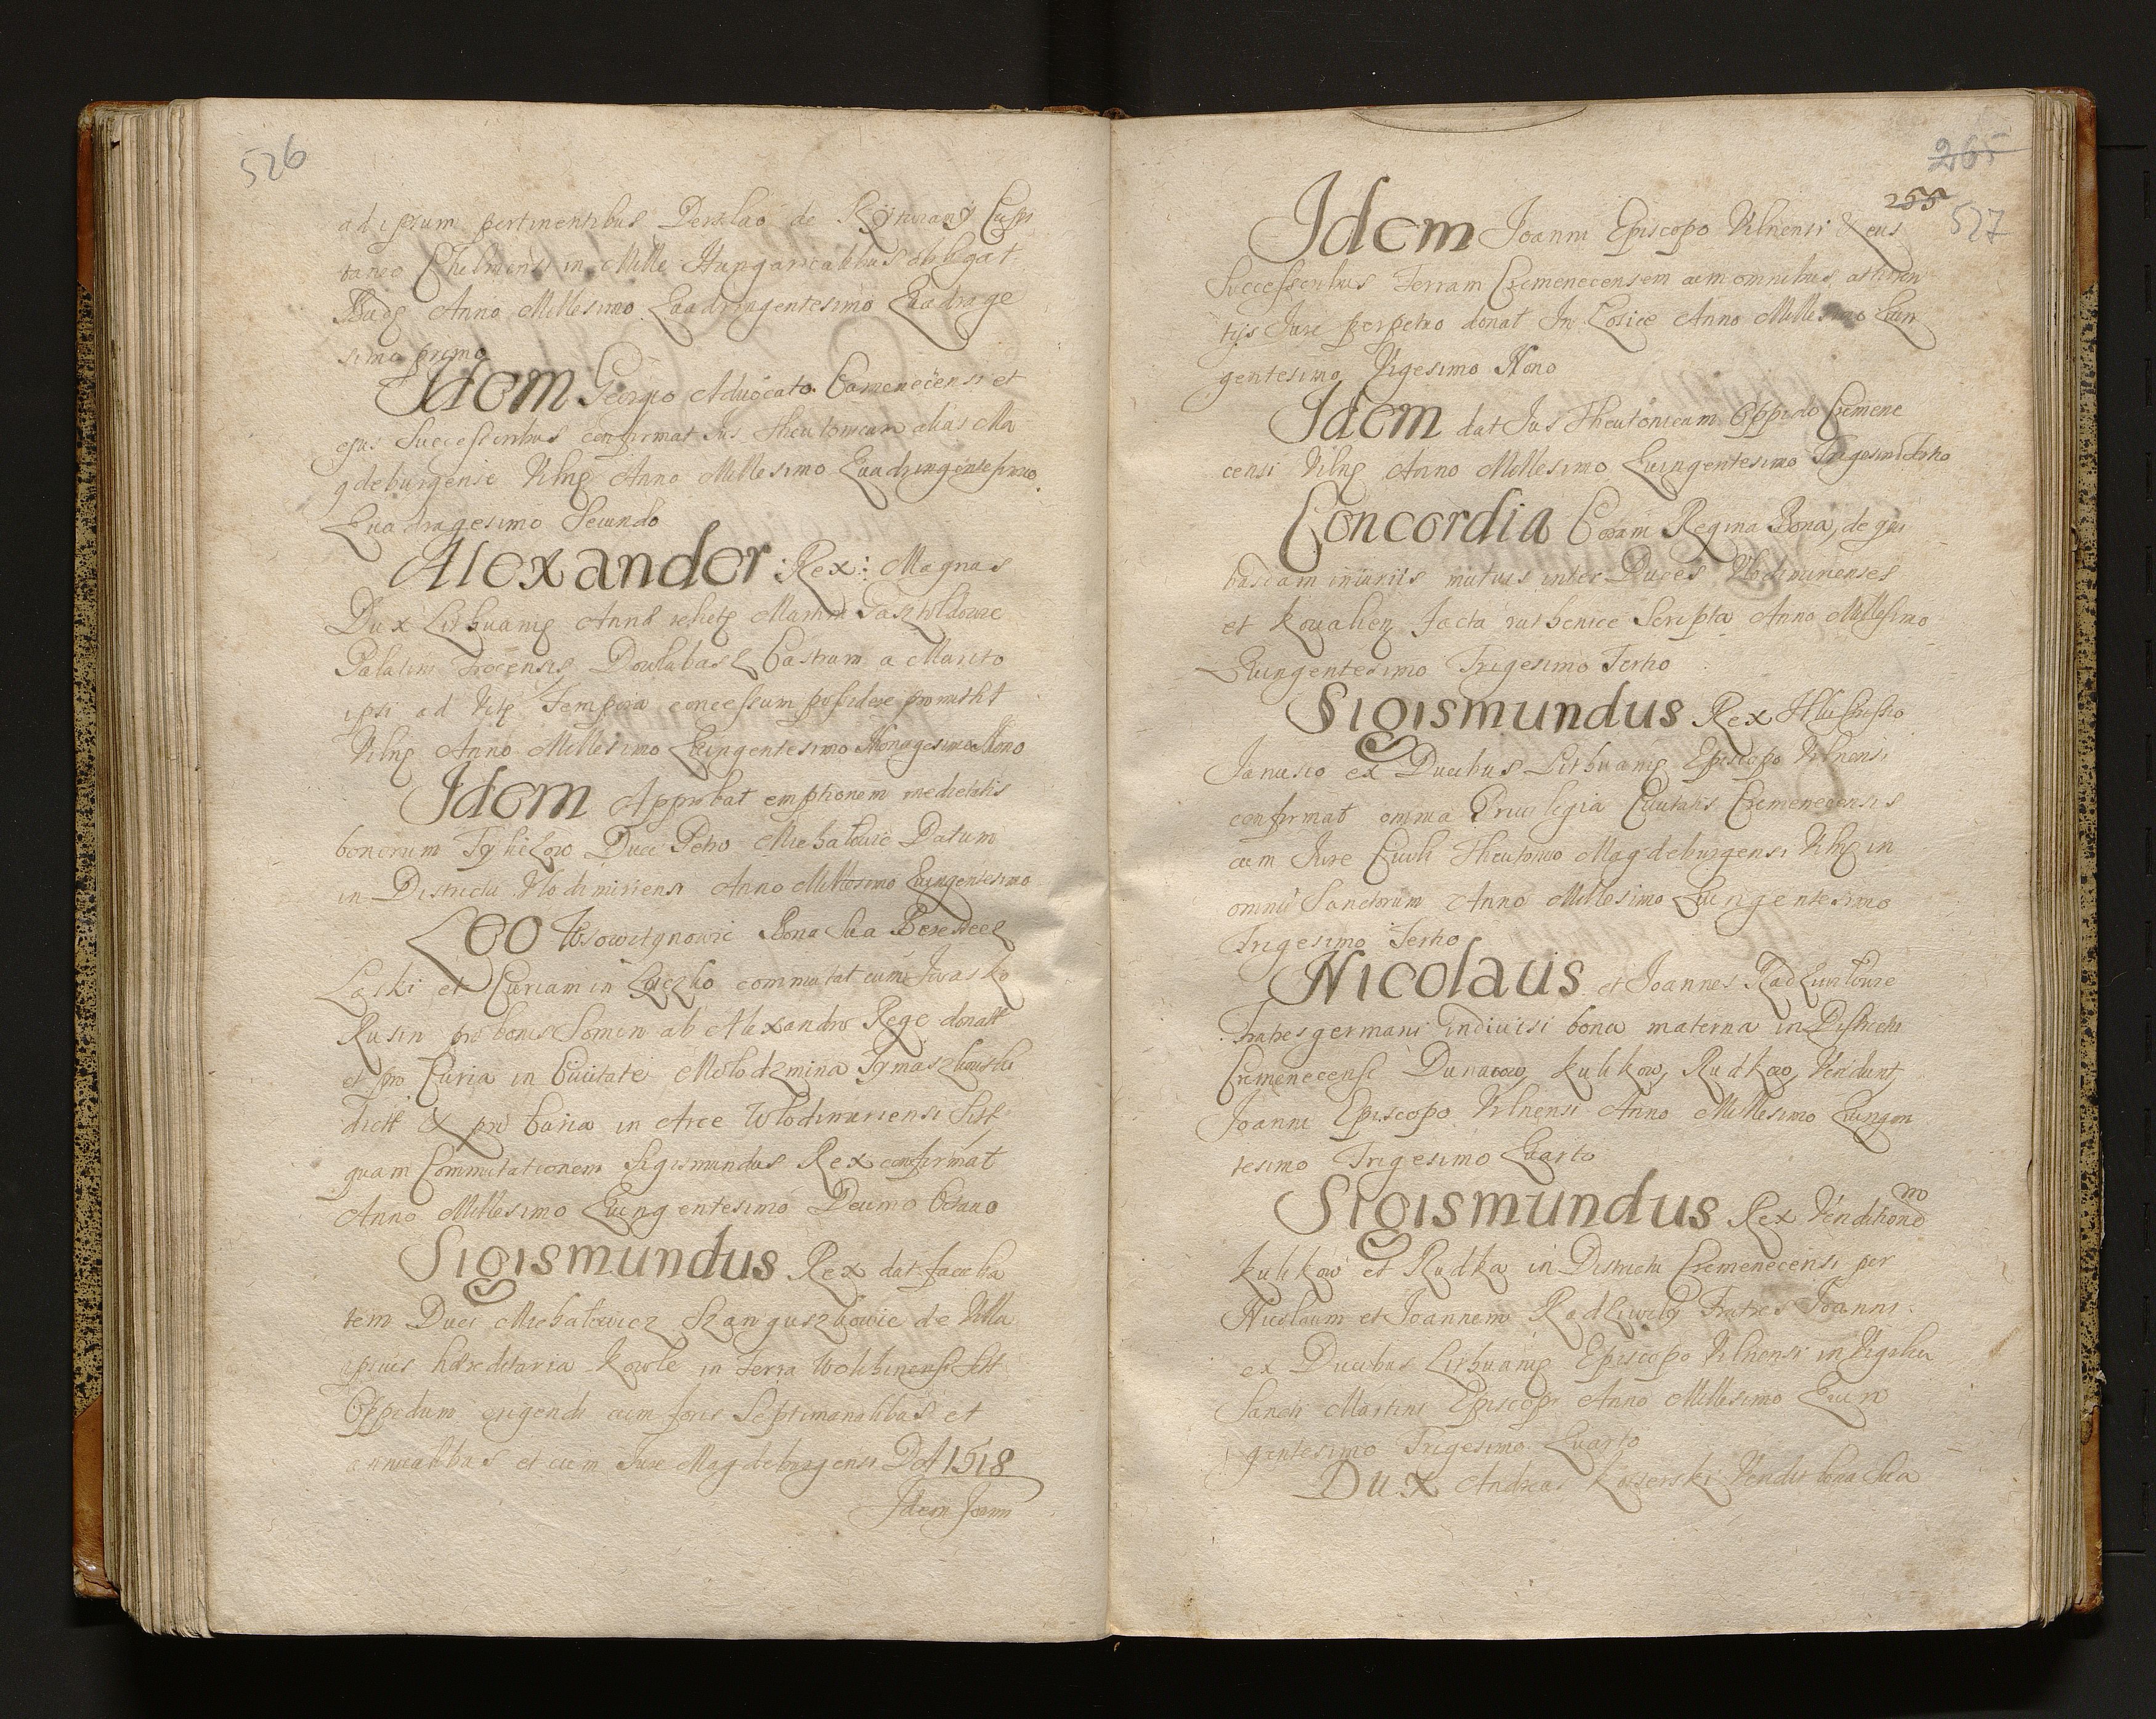 526
ad ipsum pertinentibus Derslao de Rytwiany Capi
taneo Chelmensi in Mille Hungaricalibus obligat
Budę Anno Millesimo Quadringentesimo Quadrage
simo primo
Idem Georgio Aduocato Camenecensi et
ejus Successoribus confirmat Jus Theutonicum alias Ma
gdeburgense Vilnę Anno Millesimo Quadringentesimo
Quadragesimo Secundo
Alexander Rex: Magnus
Dux Lithuanię Annę relictę Martini Gasztoldowic
Palatini Trocensis, Castrum a Marito
ipsi ad Vitę Tempora concessum possidere promittit
Vilnę Anno Millesimo Quingentesimo Nonagesimo Nono
Idem Approbat emptionem medietatis
bonorum Duci Petro Michałowic Datum
in Districtu Vlodimiriensi Anno Millesimo Quingentesimo
Leo Bona Sua
et Curiam in commutat cum Iwasko
Rusin pro bonis Somin ab Alexandro Rege donatt
et pro Curia in Ciuitate
dictt & pro Curia in Arce Wlodimiriensi Sitt,
quam Commutationem Sigismundus Rex confirmat
Anno Millesimo Quingentesimo Decimo Octauo
Sigismundus Rex dat faculta
tem Duci Michałowicz Szanguszkowic de Villa
ipsius hæreditaria Kowle in Terra Wolhinensi sitt
Oppidum erigendi cum foris Septimanalibus et
annualibus et cum Jure Magdeburgensi Dat 1518
Idem Joann
265
255
527
Idem Joanni Episcopo Vilnensi & eius
Successoribus Terram Cremenecensem cum omnibus attinen
tijs Jure perpetuo donat In Anno Millesimo Quin
gentesimo Vigesimo Nono
Idem dat Jus Theutonicum Oppido Cremene
censi Vilnę Anno Millesimo Quingentesimo Trigesimo Tertio
Concordia Coram Regina Bona, de qui
busdam iniuriis mutuis inter Duces Vlodimirienses
et facta ruthenice Scripta Anno Millesimo
Quingentesimo Trigesimo Tertio
Sigismundus Rex
Janusio ex Ducibus Lithuanię Episcopo Vilnensi
confirmat omnia Priuilegia Ciuitatis Cremenecensis
cum Jure Ciuili Theutonico Magdeburgensi Vilnę in
omniū Sanctorum Anno Millesimo Quingentesimo
Trigesimo Tertio
Nicolaus et Joannes Radziwiłowie
Fratres germani indiuisi bona materna in Districtu
Cremenecensi Kulikow, Rudkao, Vendunt
Joanni Episcopo Vilnensi Anno Millesimo Quingen
tesimo Trigesimo Quarto
Sigismundus Rex Venditionem
Kulikow et Rudka in Districtu Cremenecensi per
Nicolaum et Joannem Radziwiły Fratres Joanni
ex Ducibus Lithuanię Episcopo Vilnensi in Vigilia
Sancti Martini Episcopi Anno Millesimo Quin
gentesimo Trigesimo Quarto
Dux Andreas Vendit bona Sua